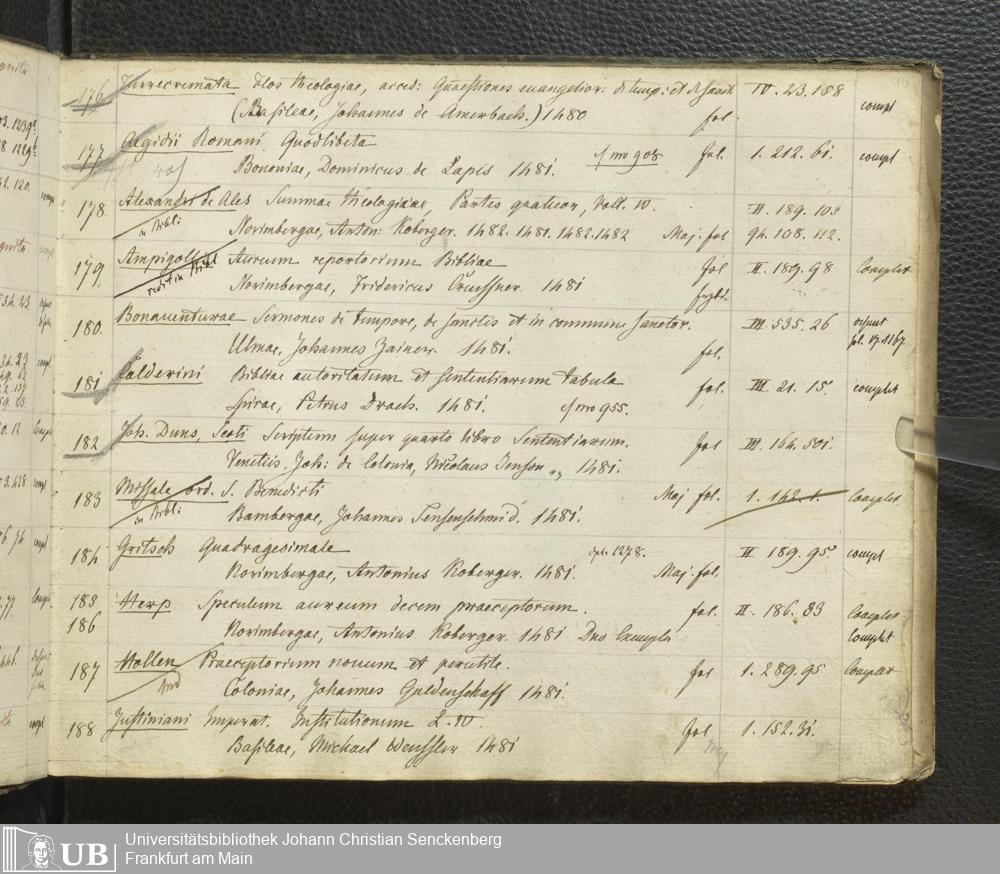 176 Turrecremata Flos theologiae, acced: Quaestiones euangelior: de temp: et de sanct IV. 23. 158
(Basileae, Johannes de Amerbach.) 1480 fol. complt
177 Aegidii Romani Quodlibeta cf nro 908 fol. 1. 212. 61. complt
Bononiae, Dominicus de Lapis 1481.
178. Alexandri de Ales Summae theologiae, Partes quatuor, Voll. IV. II. 189. 103
in Bibli Norimbergae, Anton: Koberger. 1482. 1481. 1482. 1482 Maj: fol 94. 108. 112.
179. Ampigolli Aureum reportorium Bibliae fol II. 189. 98 Complet
Norimbergae, Fridericus Creussner. 1481
180. Bonauenturae Sermones de tempore, de sanctis et in commune sanctor. III. 535. 26 desunt
Ulmae, Johannes Zainer. 1481. fol. fol. 17. 1167.
181 Calderini Bibliae autoritatum et sententiarum tabula fol. III. 21. 15. complet
Spirae, Petrus Drach. 1481. cf nro 955.
182 Joh. Duns, Scoti Scriptum super quarto libro Sententiarum. fol III. 164. 501.
Venetiis. Joh: de Colonia, Nicolaus Jenson 1481.
183 Missale ord. S. Benedicti Maj fol. 1. 142. 1. Complet
in Bibli Bambergae, Johannes Sensenschmid. 1481.
184 Gritsch Quadragesimale 1278. II. 189. 95. complt
Norimbergae, Antonius Koberger. 1481. Maj: fol.
185 Herp Speculum aureum decem praeceptorum. fol. II. 186. 83 Complet
186 Norimbergae, Antonius Koberger. 1481 Duo Exempla Complet
187 Hollen Praeceptorium nouum et perutile. fol 1. 289. 95 Complet
Coloniae, Johannes Guldenschaff 1481.
188 Justiniani Imperat. Institutionum L. IV. fol 1. 152. 31.
Basileae, Michael Wenssler 1481
UB
Universitätsbibliothek Johann Christian Senckenberg
Frankfurt am Main